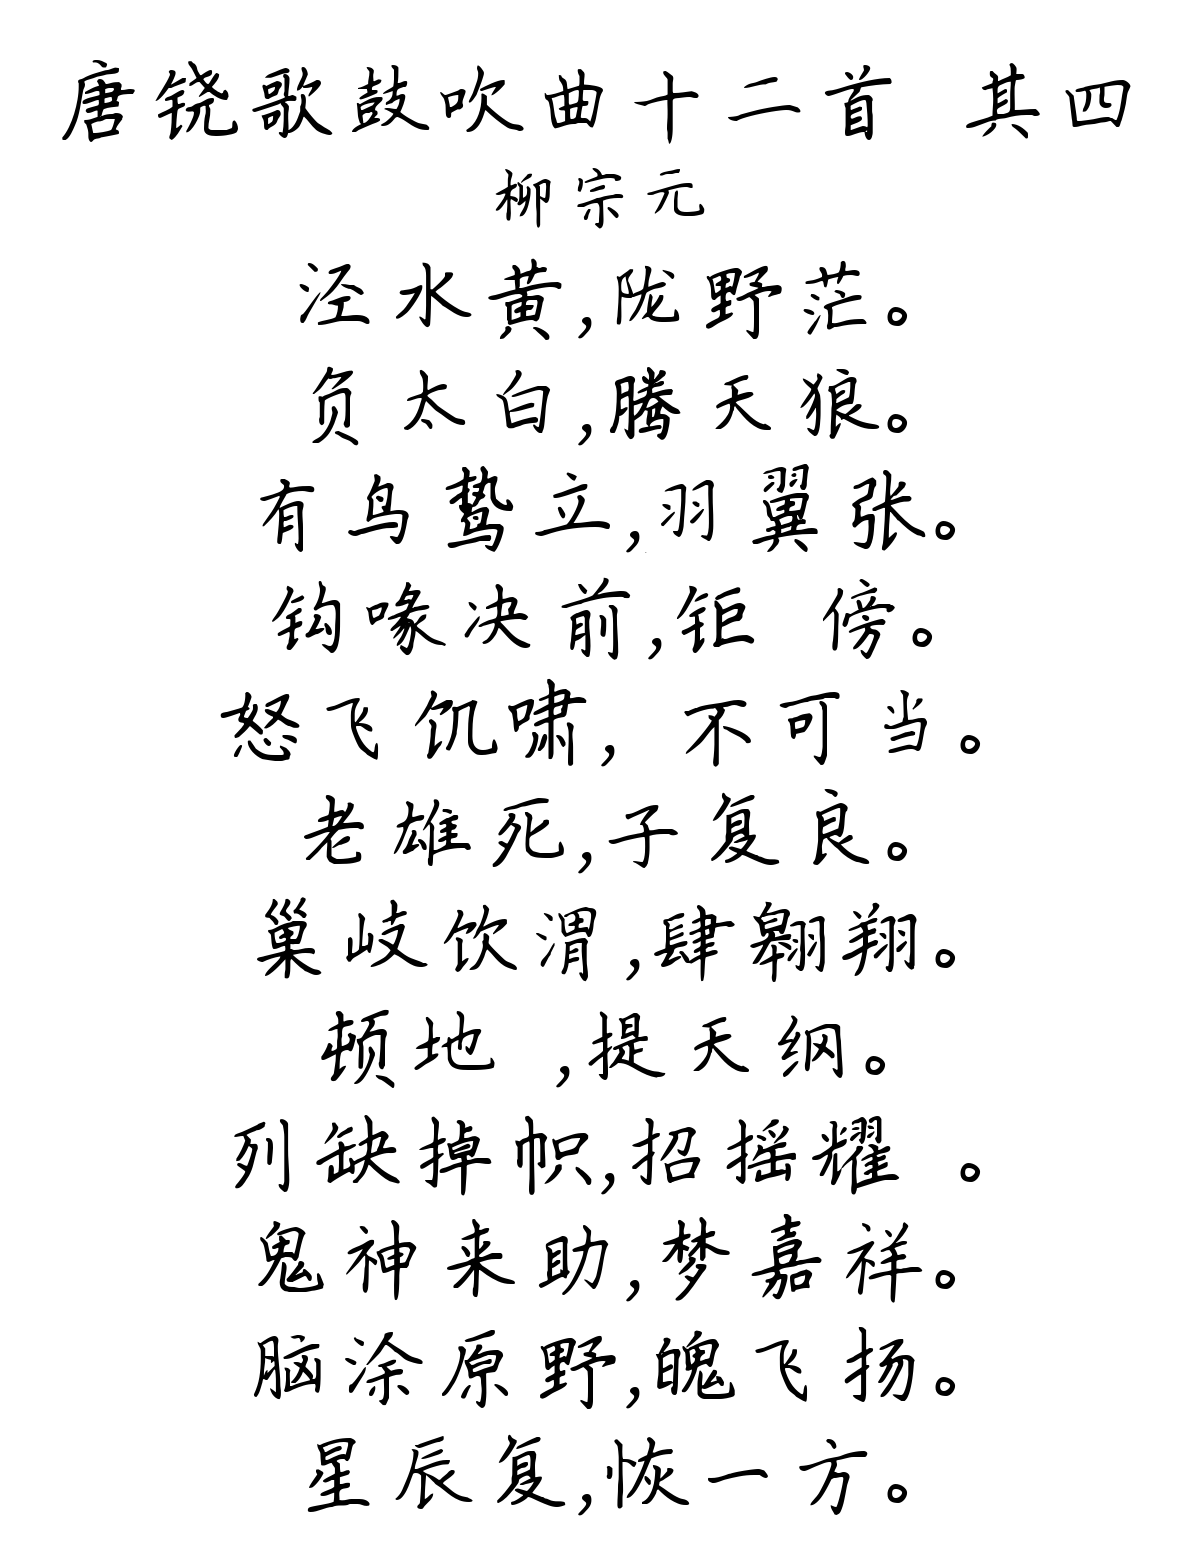 唐铙歌鼓吹曲十二首 其四
柳宗元
泾水黄,陇野茫。
负太白,腾天狼。
有鸟鸷立,羽翼张。
钩喙决前,钜 傍。
怒飞饥啸, 不可当。
老雄死,子复良。
巢岐饮渭,肆翱翔。
顿地 ,提天纲。
列缺掉帜,招摇耀 。
鬼神来助,梦嘉祥。
脑涂原野,魄飞扬。
星辰复,恢一方。